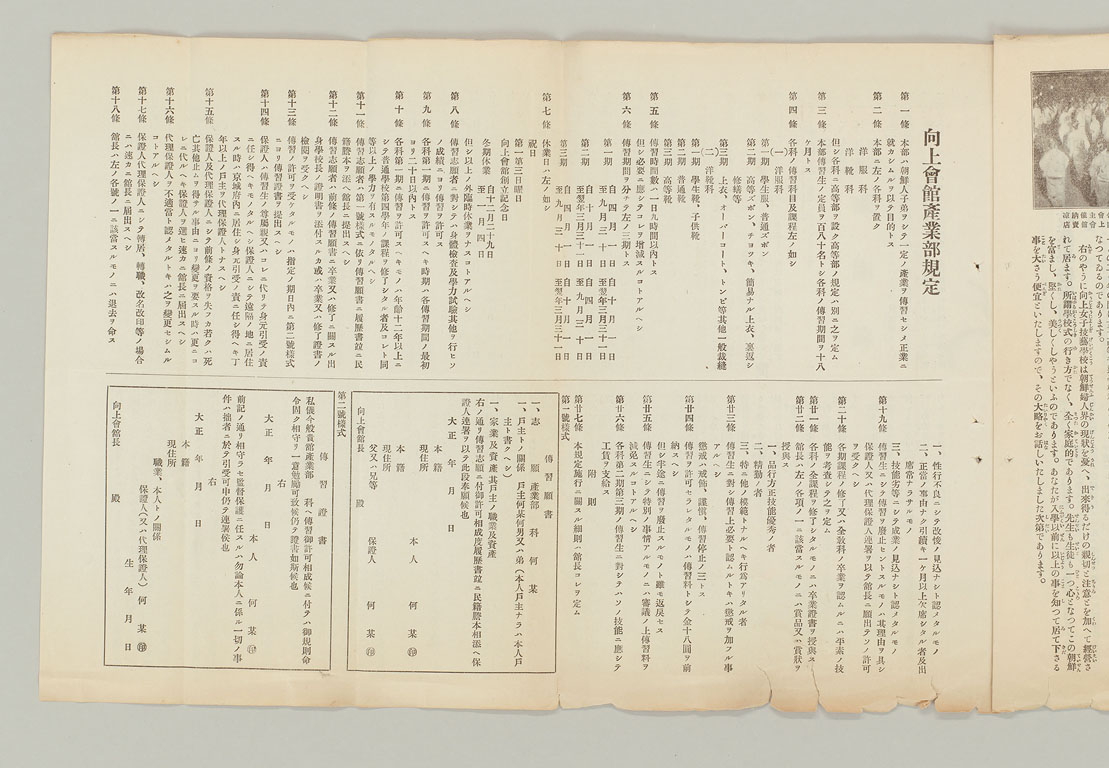 なつてゐるのであります。
右のやうに向上女子技藝學校は朝鮮婦人界の現狀を憂へ、出來得るだけの親切と注意とを加へて經營さ
れて居ます。所謂學校式の行き方でなく、全く家庭的であります。先生も生徒も一つ心となつてこの朝鮮
を富まし、堅くし、美しくしやうといふのであります。あなたが入學以前に以上の事を知つて居て下さる
事を大さう便宜といたしますので、その大略をお話しいたしました次第であります。
向上會館產業部規定
第一條 本部ハ朝鮮人子弟ヲシテ一定ノ產業ヲ傳習セシメ正業ニ
就カシムルヲ以テ目的トス
第二條 本部ニ左ノ各科ヲ置ク
洋服科
洋靴科
但シ各科ニ高等部ヲ設ク高等部ノ規定ハ別ニ之ヲ定ム
第三條 本部傳習生ノ定員ヲ百八十名トシ各科ノ傳習期間ヲ十八
ケ月トス
第四條 各科ノ傳習科目及課程左ノ如シ
(一)洋服科
第一期 學生服、普通ズボン
第二期 高等ズボン、チョツキ、簡易ナル上衣、裏返シ
修繕等
第三期 上衣、オーバーコート、トンビ等其他一般裁縫
(二)洋靴科
第一期 學生靴、子供靴
第二期 普通靴
第三期 高等靴
第五條 傳習時間數ハ一日九時間以內トス
但シ必要ニ應シテコレヲ增減スルコトアルヘシ
第六條 傳習期間ヲ分チテ左ノ三期トス
第一期 自四月一日至九月三十日 自十月一日至翌年三月三十一日
第二期 自十月一日至翌年三月三十一日 自四月一日至九月三十日
第三期 自四月一日至九月三十日 自十月一日至翌年三月三十一日
第七條 休業日ハ左ノ如シ
祝日
第一第三日曜日
向上會館創立記念日
冬期休業 自十二月二十九日至一月四日
但シ以上ノ外臨時休業ヲナスコトアルヘシ
第八條 傳習志願者ニ對シテハ身體檢查及學力試驗其他ヲ行ヒソ
ノ成績ニヨリ傳習ヲ許可ス
第九條 各科第一期ニ傳習ヲ許可スヘキ時期ハ各傳習期間ノ最初
ヨリ二十日以內トス
第十條 各科第一期ニ傳習ヲ許可スヘキモノハ年齡十二年以上ニ
シテ普通學校第四學年ノ課程ヲ修了シタル者及コレト同
等以上ノ學力ヲ有スルモノタルヘシ
第十一條 傳習志願者ハ第一號樣式ニ依リ傳習願書ニ履歷書竝ニ民
籍謄本ヲ添ヘ館長ニ提出スヘシ
第十二條 傳習志願者ハ前條ノ傳習願書ニ卒業又ハ修了ニ關スル出
身學校長ノ證明書ヲ添付スルカ或ハ卒業又ハ修了證書ノ
檢閱ヲ受クヘシ
第十三條 傳習ノ許可ヲ受ケタルモノハ指定ノ期日內ニ第二號樣式
ニヨリ傳習證書ヲ提出スヘシ
第十四條 保證人ハ傳習生ノ尊屬親又ハコレニ代リテ身元引受ノ責
ニ任シ得ヘキモノタルヘシ保證人ニシテ遠隔ノ地ニ居住
スル時ハ京城府內ニ居住シ身元引受ノ責ニ任シ得ヘキ丁
年以上ノ戶主ヲ代理保證人トナスヘシ
第十五條 保證人及代理保證人ニシテ前條ノ資格ヲ失フカ若クハ死
亡其他止ムヲ得サル事由ニヨリ變更ヲ要スル時ハ更ニコ
レニ代ルヘキ保證人ヲ選ヒ速カニ館長ニ屆出スヘシ
第十六條 代理保證人ヲ不適當ト認メタルトキハ之ヲ變更セシムル
コトアルヘシ
第十七條 保證人代理保證人ニシテ轉居、轉職、改名改印等ノ場合
ニハ速カニ館長ニ屆出スヘシ
第十八條 館長ハ左ノ各號ノ一ニ該當スルモノニハ退去ヲ命ス
一、性行不良ニシテ改悛ノ見込ナシト認メタルモノ
二、正當ノ事由ナク引續キ一ケ月以上欠席シタル者及出
席常ナラサルモノ
三、技能劣等ニシテ成業ノ見込ナシト認メタルモノ
第十九條 傳習生ニシテ傳習ヲ廢止セントスルモノハ其理由ヲ具シ
保證人又ハ代理保證人連署ヲ以テ館長ニ願出テソノ許可
ヲ受クヘシ
第二十條 各期課程ノ修了又ハ全敎科ノ卒業ヲ認ムルニハ平素ノ技
能ヲ考查シテ之ヲ定ム
第廿一條 各科ノ全課程ヲ修了シタルモノニハ卒業證書ヲ授與ス
第廿二條 館長ハ左ノ各項ノ一ニ該當スルモノニハ賞品又ハ賞狀ヲ
授與ス
一、品行方正技能優秀ノ者
二、精勤ノ者
三、特ニ他ノ模範トナルヘキ行爲アリタル者
第廿三條 傳習生ニ對シ傳習上必要ト認ムルトキハ懲戒ヲ加フル事
アルヘシ
懲戒ハ戒飭、謹愼、傳習停止ノ三トス
第廿四條 傳習ヲ許可セラレタルモノハ傳習料トシテ金十八圓ヲ前
納スヘシ
但シ半途ニ傳習ヲ廢止スルモノト雖モ返戾セス
第廿五條 傳習生ニシテ特別ノ事情アルモノニハ審議ノ上傳習料ヲ
減免スルコトアルヘシ
第廿六條 各科第二期第三期ノ傳習生ニ對シテハソノ技能ニ應シテ
工賃ヲ支給ス
附則
第廿七條 本規定施行ニ關スル細則ハ館長コレヲ定ム
第一號樣式
傳習願書
一、志願產業部 科何某
一、戶主トノ關係 戶主何某何男又ハ弟(本人戶主ナラハ本人戶
主ト書クヘシ)
一、家業及資產其戶主ノ職業及資產
右ノ通リ傳習志願ニ付御許可相成度履歷書竝ニ民籍謄本相添ヘ保
證人連署ヲ以テ此段奉願候也
大正 年 月 日
本籍
現住所
本人 何某㊞
本籍
現住所
父又ハ兄等
保證人 何某㊞
向上會館長 殿
第二號樣式
傳習證書
私儀今般貴館產業部 科ヘ傳習御許可相成候ニ付テハ御規則命
令固ク相守リ一意勉勵可致候仍テ證書如斯候也
大正 年 月 日
右
本人 何某㊞
前記ノ通リ相守ラセ監督保護ニ任スルハ勿論本人ニ係ル一切ノ事
件ハ拙者ニ於テ引受可申仍テ連署候也
大正 年 月 日
右
本籍
現住所
職業、本人トノ關係
保證人(又ハ代理保證人) 何某㊞
生年月日
向上會館長 殿